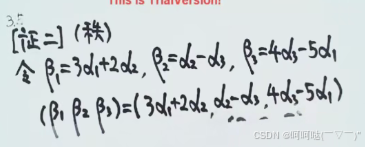 This is TrialVersion!
3.5
[证二] (秩)
令 β₁=3α₁+2α₂, β₂=α₂-α₃, β₃=4α₃-5α₁
(β₁ β₂ β₃)=(3α₁+2α₂, α₂-α₃, 4α₃-5α₁)
CSDN @呵呵哒(￣▽￣)"